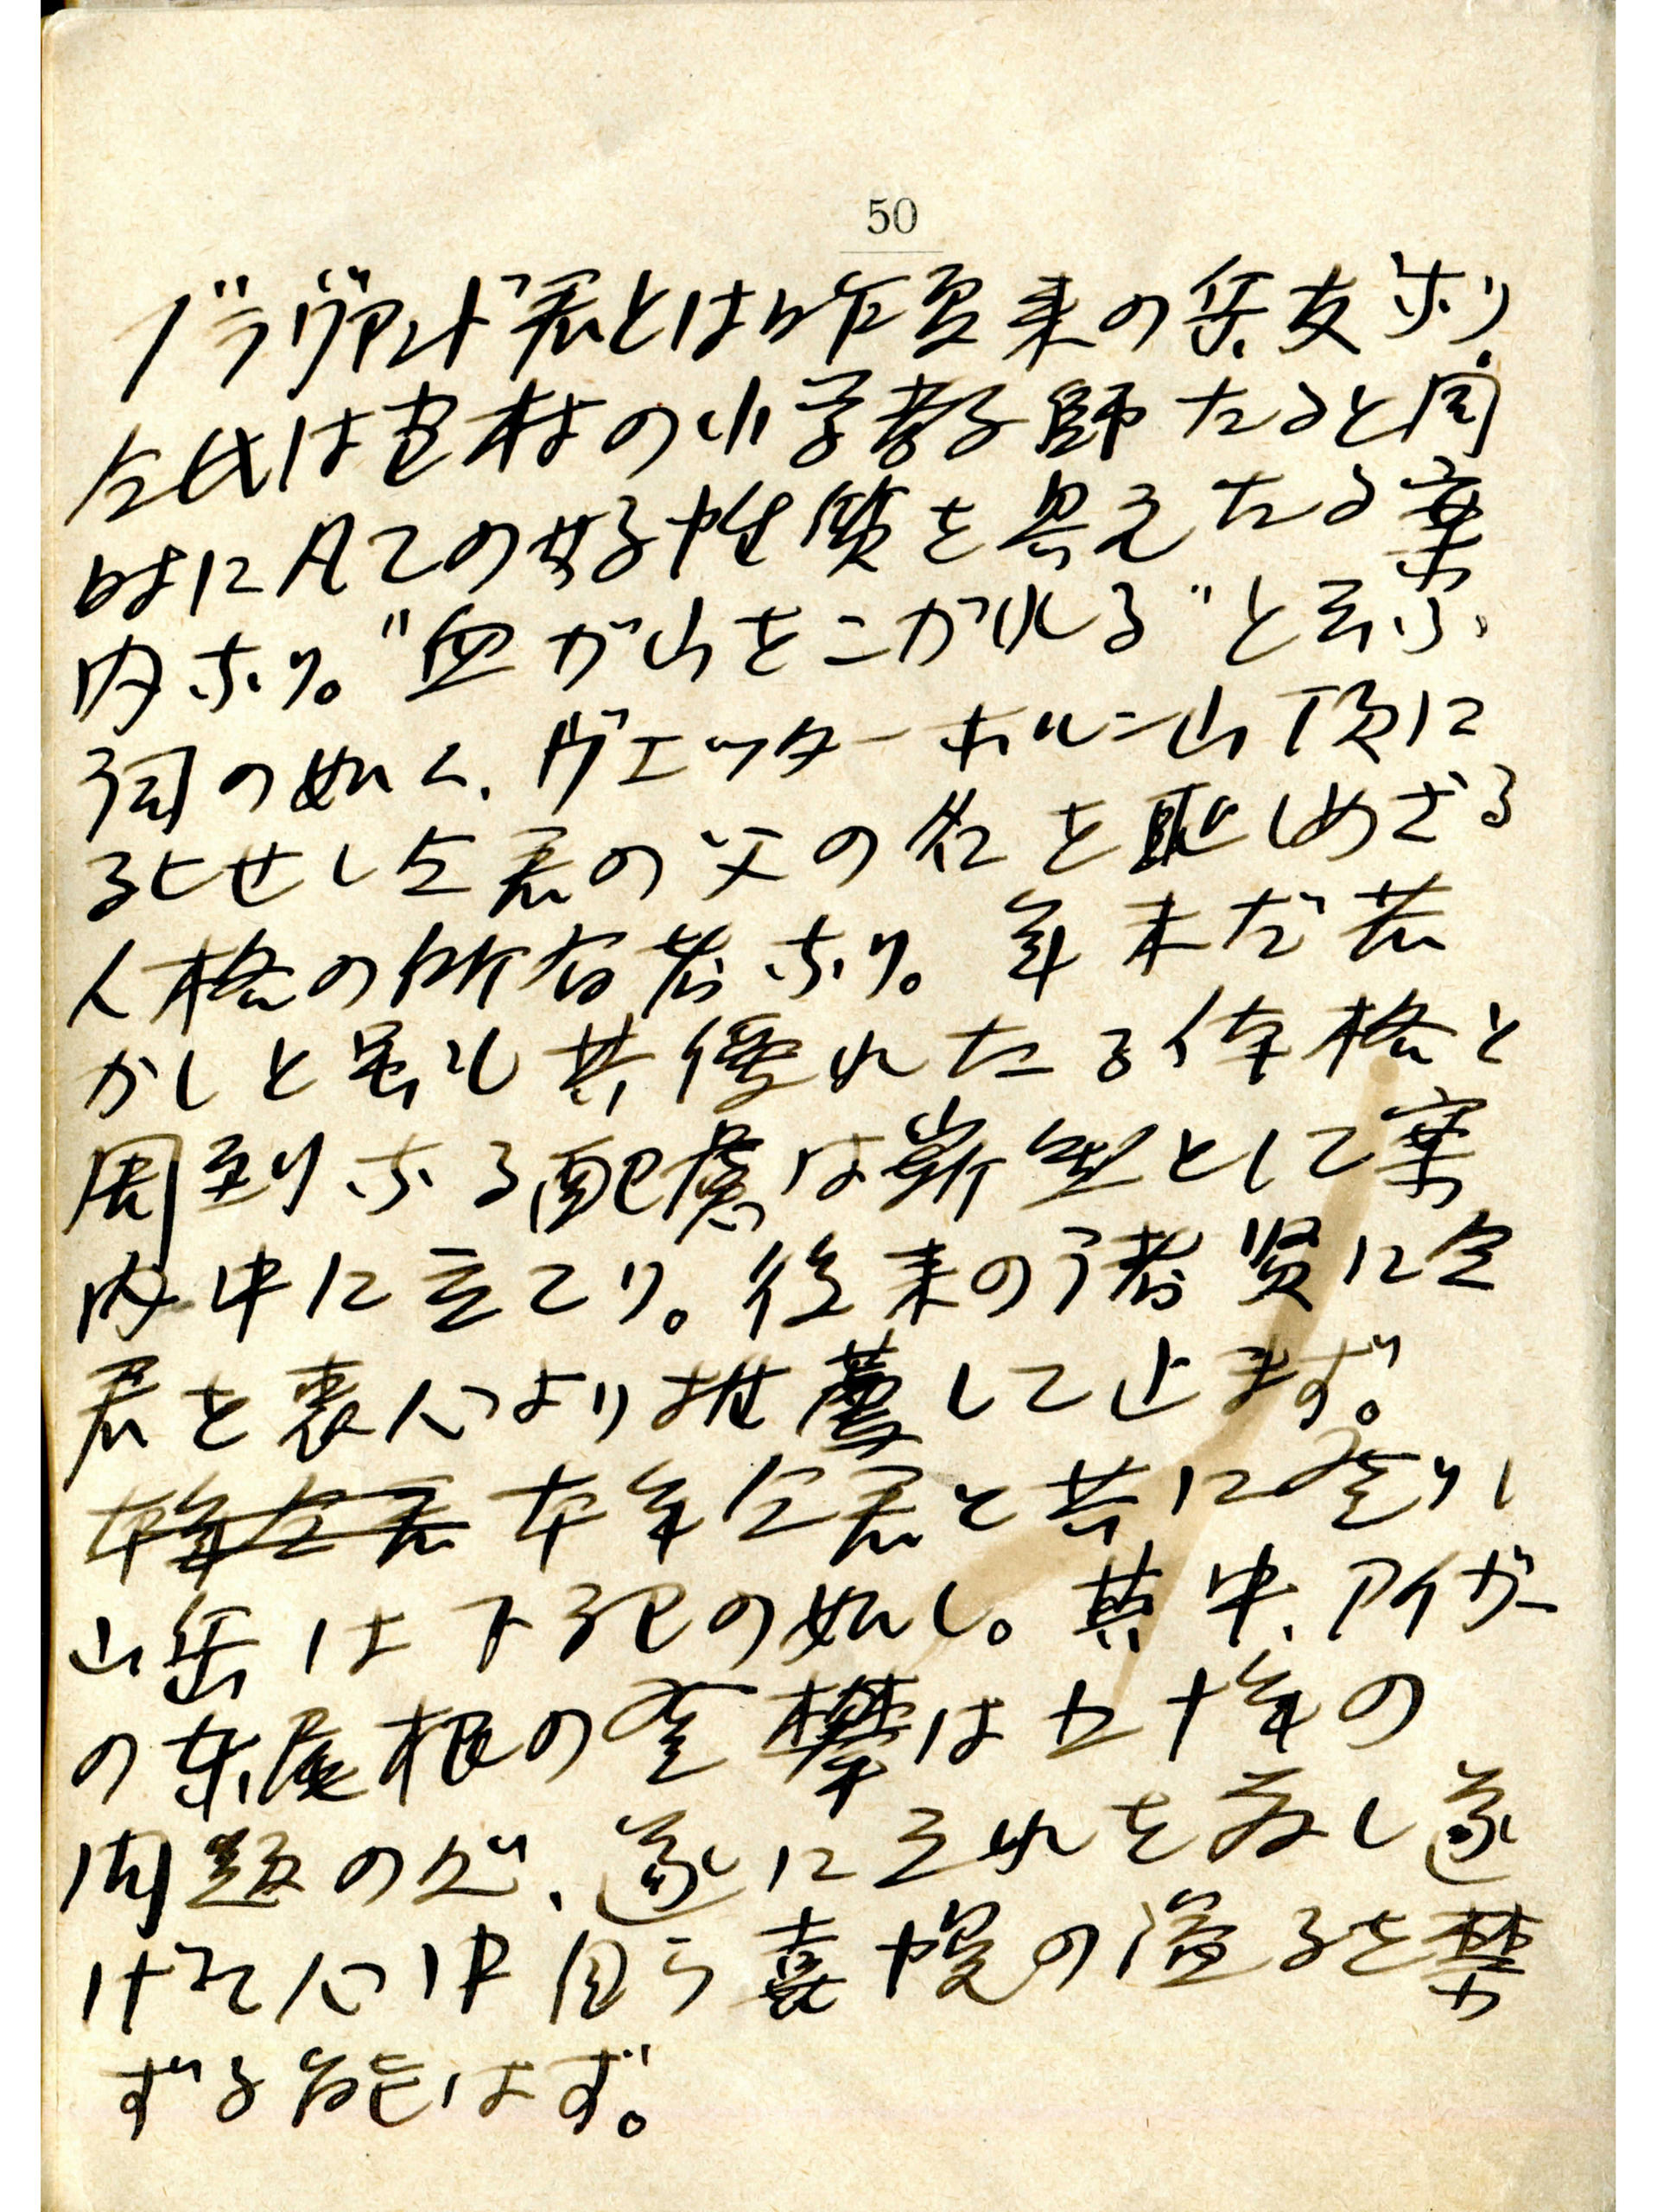 50
ブラヴァンド君とは昨夏来の岳友なり.
仝氏は当村の小学教師たると同
時に凡ての好性質を具えたる案
内なり。"血が山をこがれる"と云ふ
詞の如く、ヴェッターホルン山頂に
死せし仝君の父の名を恥しめざる
人格の所有者なり。年未だ若
かしと雖も其優れたる体格と
周到なる配慮は嶄然として案
内中に立てり。後来の諸賢に仝
君を衷心より推薦して止まず。
本年仝君 本年仝君と共に登りし
山岳は下記の如し。其中、アイガー
の東尾根の登攀は五十年の
問題の処、遂にそれを為し遂
げ得て心中自ら喜悦の溢るを禁
ずる能はず。